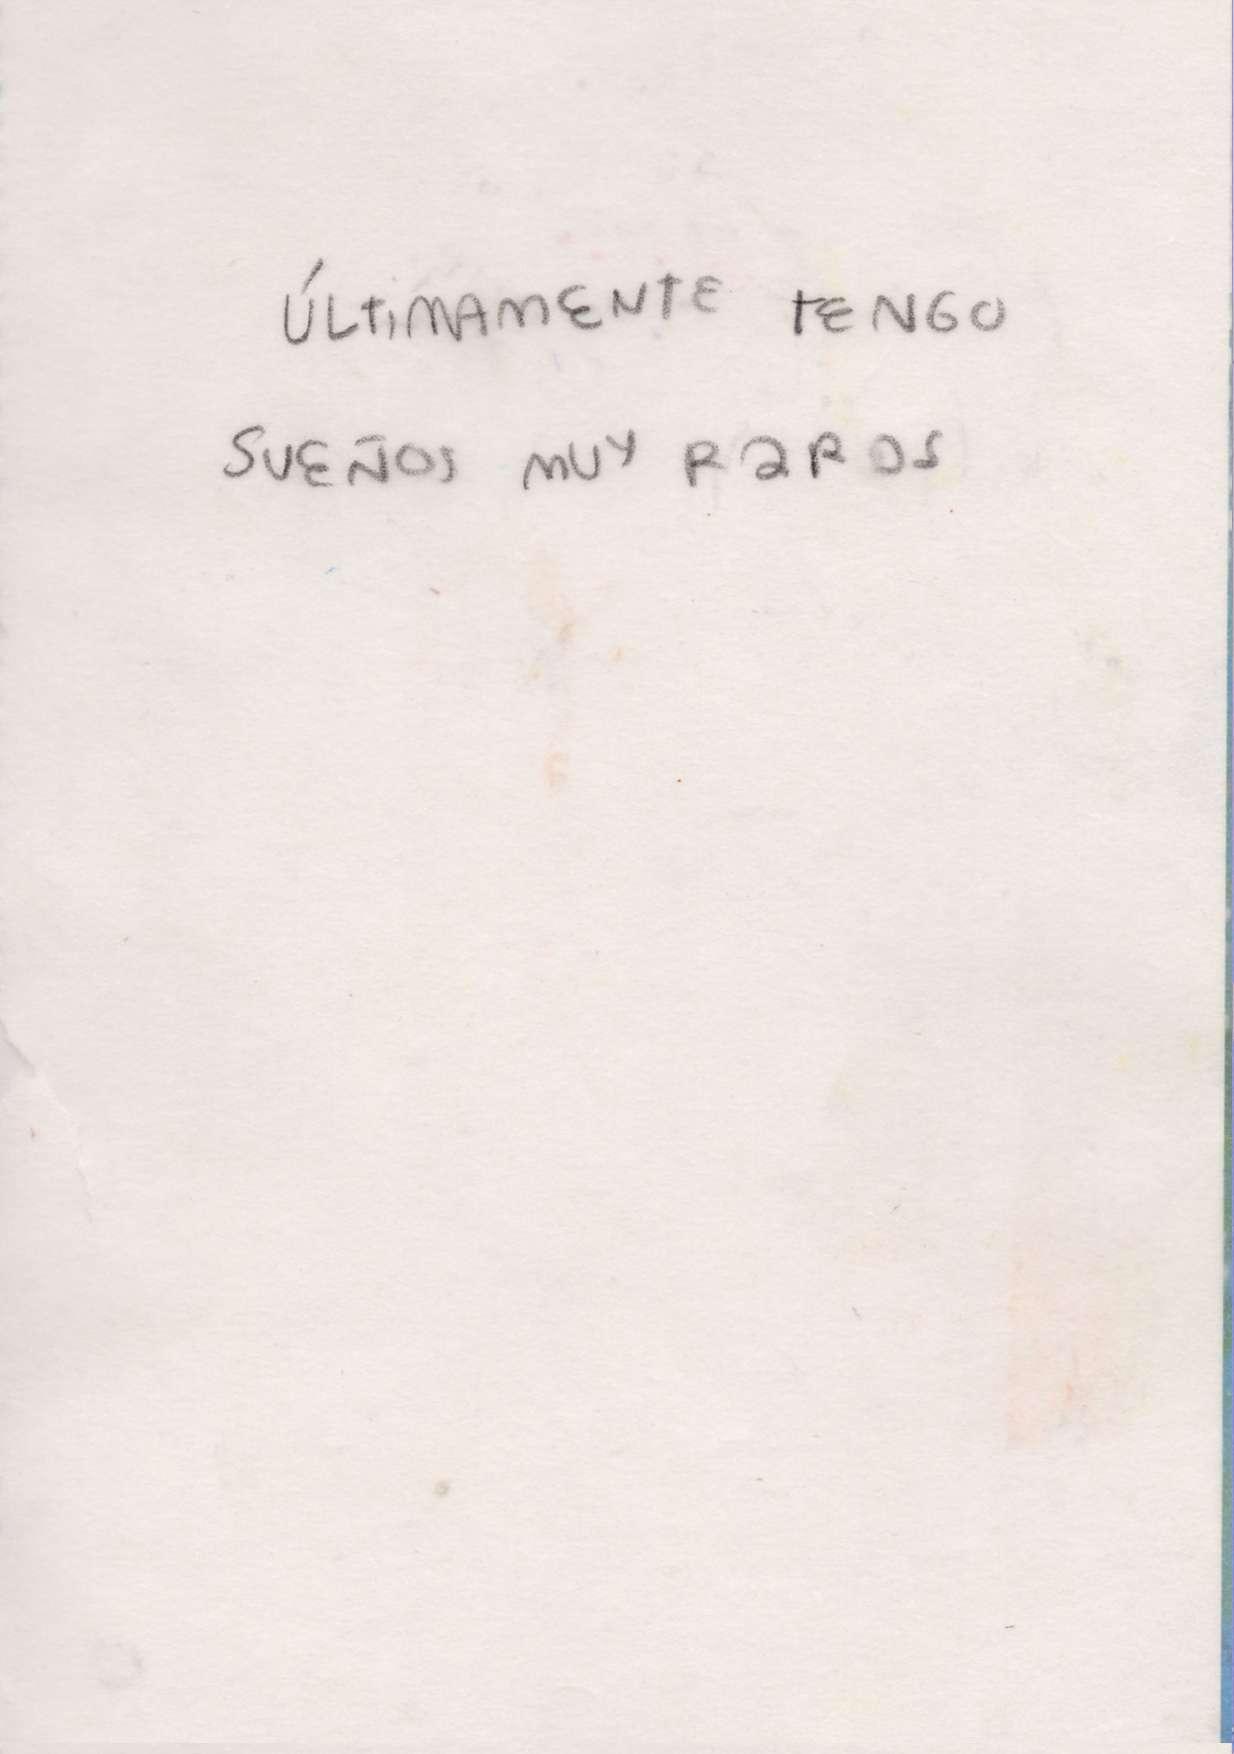 ÚLTIMAMENTE TENGO
SUEÑOS MUY RAROS